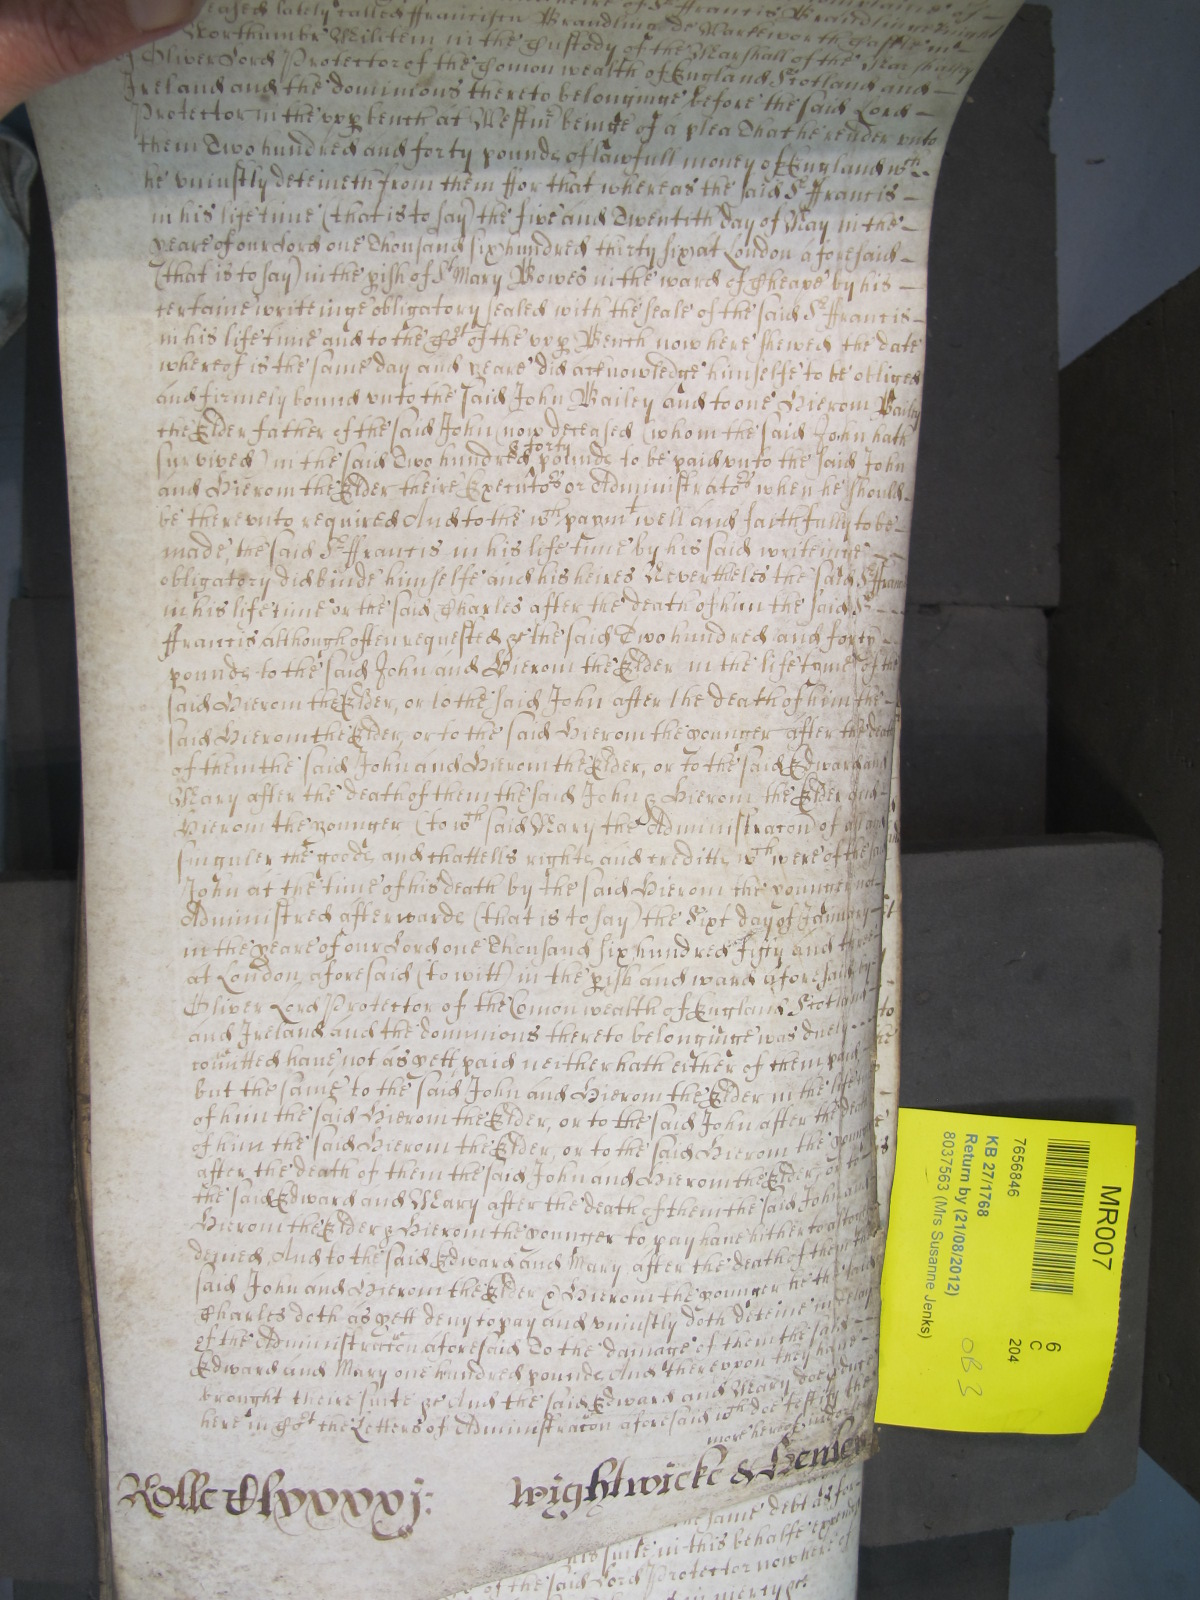 eased lately called Ffrancisen Brandling de
Northumbr Militem in the Custody of the Marshall of the Marshalsey
of Oliver Lord Protector of the Comon wealth of England Scotland and
Ireland and the dominions thereto belonginge before the said Lord
Protector in the upp bench at Westm beinge of a plea That he render unto
them Two hundred and forty pounds of lawfull money of England wch
he uniustly deteineth from them Ffor that whereas the said Sr Ffrancis
in his life time (that is to say) the five and Twentith day of May in the
yeare of our Lord one Thousand six hundred thirty six at London aforesaid
(that is to say) in the pish of St Mary Bowes in the ward of Cheape by his
certaine writeinge obligatory sealed with the seale of the said Sr Ffrancis
in his life time and to the Cot of the upp Bench now here shewed the date
whereof is the same day and yeare did acknowledge himselfe to be obliged
and firmely bound unto the said John Bailey and to one Hierom Bailey
the Elder father of the said John now deceased (whom the said John hath
survived) in the said Two hundred & forty pounds to be paid unto the said John
and Hierom the Elder theire Executors or Administrators when he should
be thereunto required And to the wch paymt well and faithfully to be
made, the said Sr Ffrancis in his life time by his said writeinge
obligatory did binde himselfe and his heires Nevertheles the said Sr Ffran
in his life time or the said Charles after the death of him the said Sr
Ffrancis although often requested &c the said Two hundred and forty
pounds to the said John and Hierom the Elder in the life tyme of the
said Hierom the Elder, or to the said John after the death of him the
said Hierom the Elder, or to the said Hierom the younger after the death
of them the said John and Hierom the Elder, or to the said Edward and
Mary after the death of them the said John & Hierom the Elder and
Hierom the younger (to wch said Mary the Administracon of all and
singuler the goods and chattells rights and creditts wch were of the said
John at the time of his death by the said Hierom the younger not
Administred afterwards (that is to say) the Sixt day of January
in the yeare of our Lord one Thousand six hundred fifty and three
at London aforesaid (to witt) in the pish and ward aforesaid by
Oliver Lord Protector of the Comon wealth of England Scotland
and Ireland and the dominions thereto belonginge was duely
comitted have not as yett paid neither hath either of them paid
but the same to the said John and Hierom the Elder in the life
of him the said Hierom the Elder, or to the said John after the death
of him the said Hierom the Elder, or to the said Hierom the younger
after the death of them the said John and Hierom the Elder, or to
the said Edward and Mary after the death of them the said John and
Hierom the Elder & Hierom the younger to pay have hitherto altog
denied, And to the said Edward and Mary after the death of them the
said John and Hierom the Elder & Hierom the younger he the said
Charles doth as yett deny to pay and uniustly doth deteine in delay
of the Administracon aforesaid To the damage of them the said
Edward and Mary one hundred pounds And thereupon they have
brought theire suite &c And the said Edward and Mary doe
here in Cot the Letters of Administracon aforesaid wch doe testify the
more hereof
Rolle Clxxxxj: Wightwicke & Henley
same debt as for
his suite in this behalfe expend
of the said Lord Protector now here of
in mercy &c.
MR007
6
C
204
7656846
KB 27/1768
Return by (21/08/2012)
8037563 (Mrs Susanne Jenks)
OB3